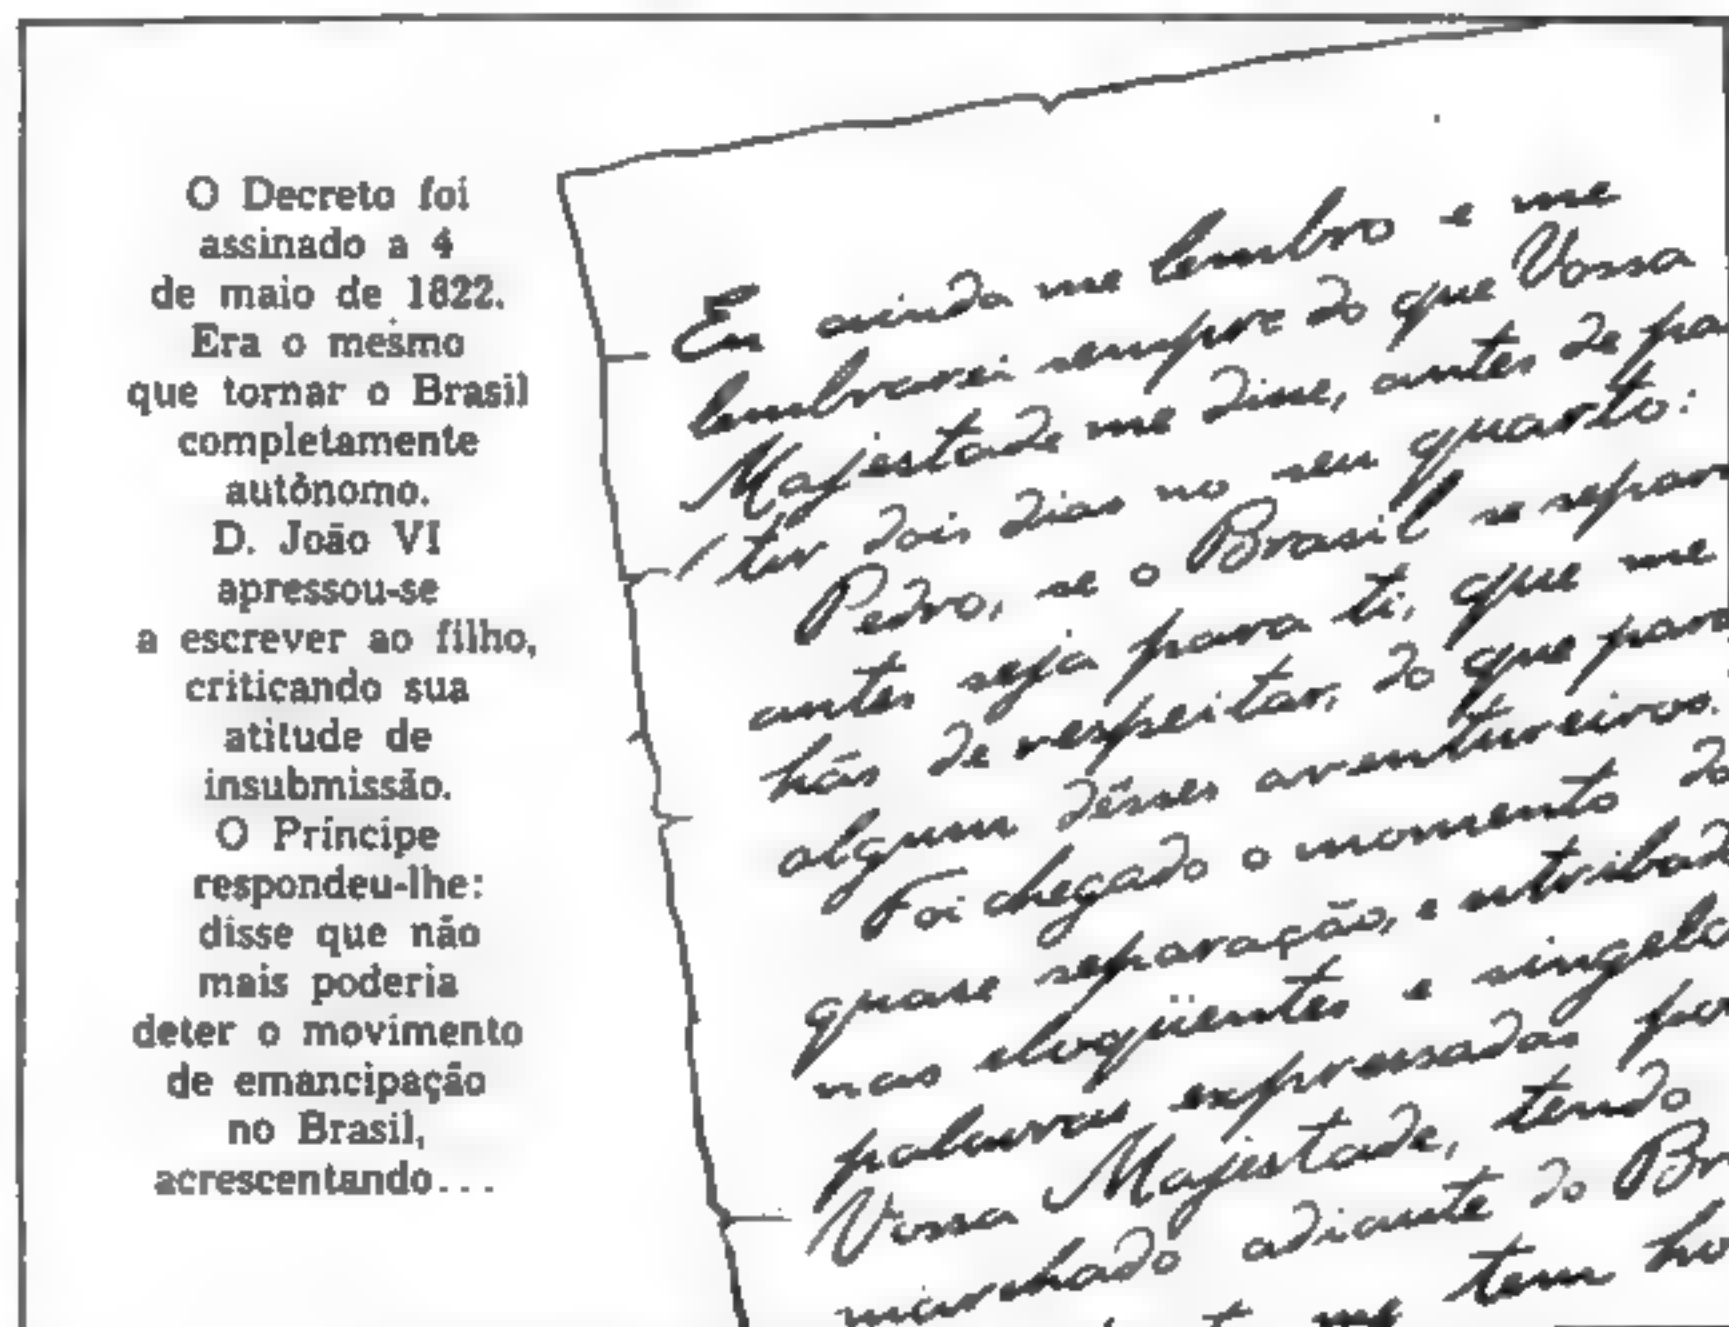 O Decreto foi
assinado a 4
de maio de 1822.
Era o mesmo
que tornar o Brasil
completamente
autônomo.
D. João VI
apressou-se
a escrever ao filho,
criticando sua
atitude de
insubmissão.
O Príncipe
respondeu-lhe:
disse que não
mais poderia
deter o movimento
de emancipação
no Brasil,
acrescentando...
Eu ainda me lembro e me
lembrarei sempre do que Vossa
Majestade me disse, antes de
tir dois dias no seu quarto:
Pedro, se o Brasil se
antes seja para ti, que me
hás de respeitar, do que
algum dêsses aventureiros.
Foi chegado o momento
quase separação, e
nas eloqüentes e
palavras expressadas por
Vossa Majestade, tendo
marchado adiante do
me tem